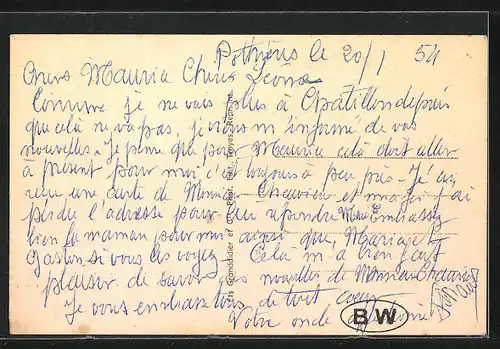 Pothières le 20/1 54
Chers Maurice Chère Léone
Comme je ne vais plus à Chatillon depuis
que celà ne va pas, je viens m'informé de vos
nouvelles. Je pense que pour Maurice celà doit aller
à present pour moi c'est toujours à peu près. J'ai
reçu une carte de Monsieur et moi j'ai
perdu l'adresse pour leur reprendre Embrassez
bien la maman pour moi ainsi que, Mariajet
Gaston si vous les voyez. Cela m'a bien fait
plaisir de savoir des nouvelles de Monsieur
Je vous embrasse tous de tout coeur
Votre oncle
BW